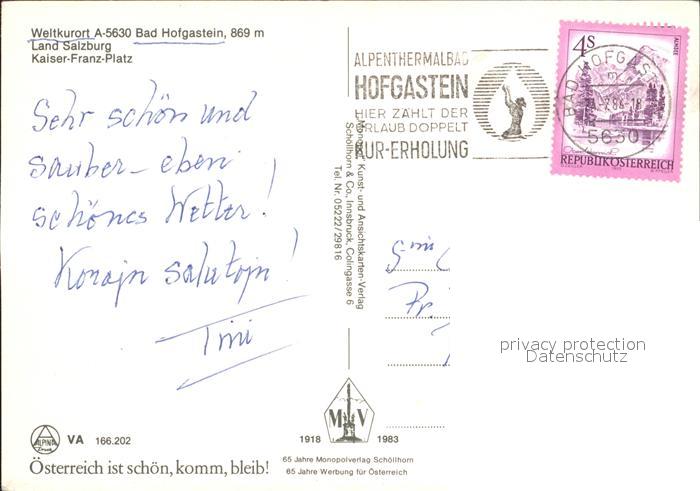 Weltkurort A-5630 Bad Hofgastein, 869 m
Land Salzburg
Kaiser-Franz-Platz
Sehr schön und
sauber - eben
schönes Wetter!
Korajn salutojn!
Timi
ALPENTHERMALBAD
HOFGASTEIN
HIER ZÄHLT DER
URLAUB DOPPELT
KUR-ERHOLUNG
BAD HOFGAS
5630
4S
ALMSEE
REPUBLIK ÖSTERREICH
Kunst- und Ansichtskarten-Verlag
Schöllhorn & Co., Innsbruck, Colingasse 6
Tel. Nr. 05222/29816
privacy protection
Datenschutz
MV
1918 1983
65 Jahre Monopolverlag Schöllhorn
65 Jahre Werbung für Österreich
ALPINA
VA 166.202
Österreich ist schön, komm, bleib!